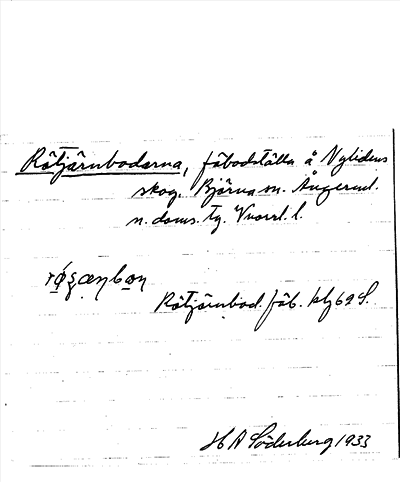 Rötjärnbodarna, fäbodställe å Nylidens
skog, Björna sn. Ångerml.
n. doms. tg. Vnorrl. l.
Rötjärnbod. fäb. kbl 62 S.
H A Söderberg 1933